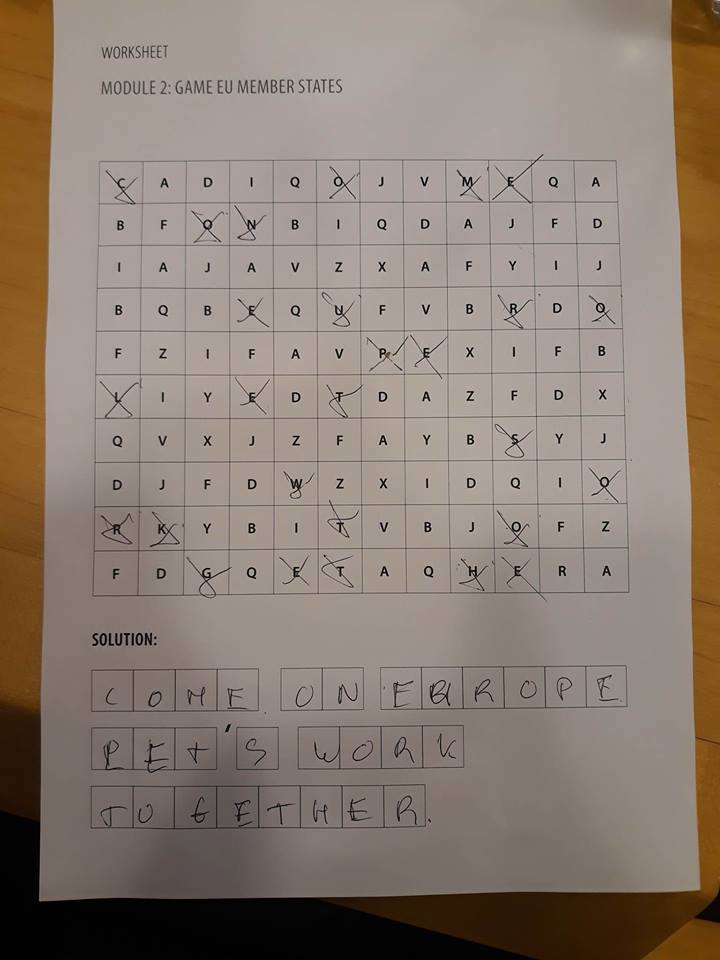 WORKSHEET
MODULE 2: GAME EU MEMBER STATES
C A D I Q O J V M E Q A
B F O N B I Q D A J F D
I A J A V Z X A F Y I J
B Q B E Q U F V B R D O
F Z I F A V P E X I F B
L I Y E D T D A Z F D X
Q V X J Z F A Y B S Y J
D J F D W Z X I D Q I O
R K Y B I T V B J O F Z
F D G Q E T A Q H E R A
SOLUTION:
COME ON EUROPE
LET'S WORK
TOGETHER.